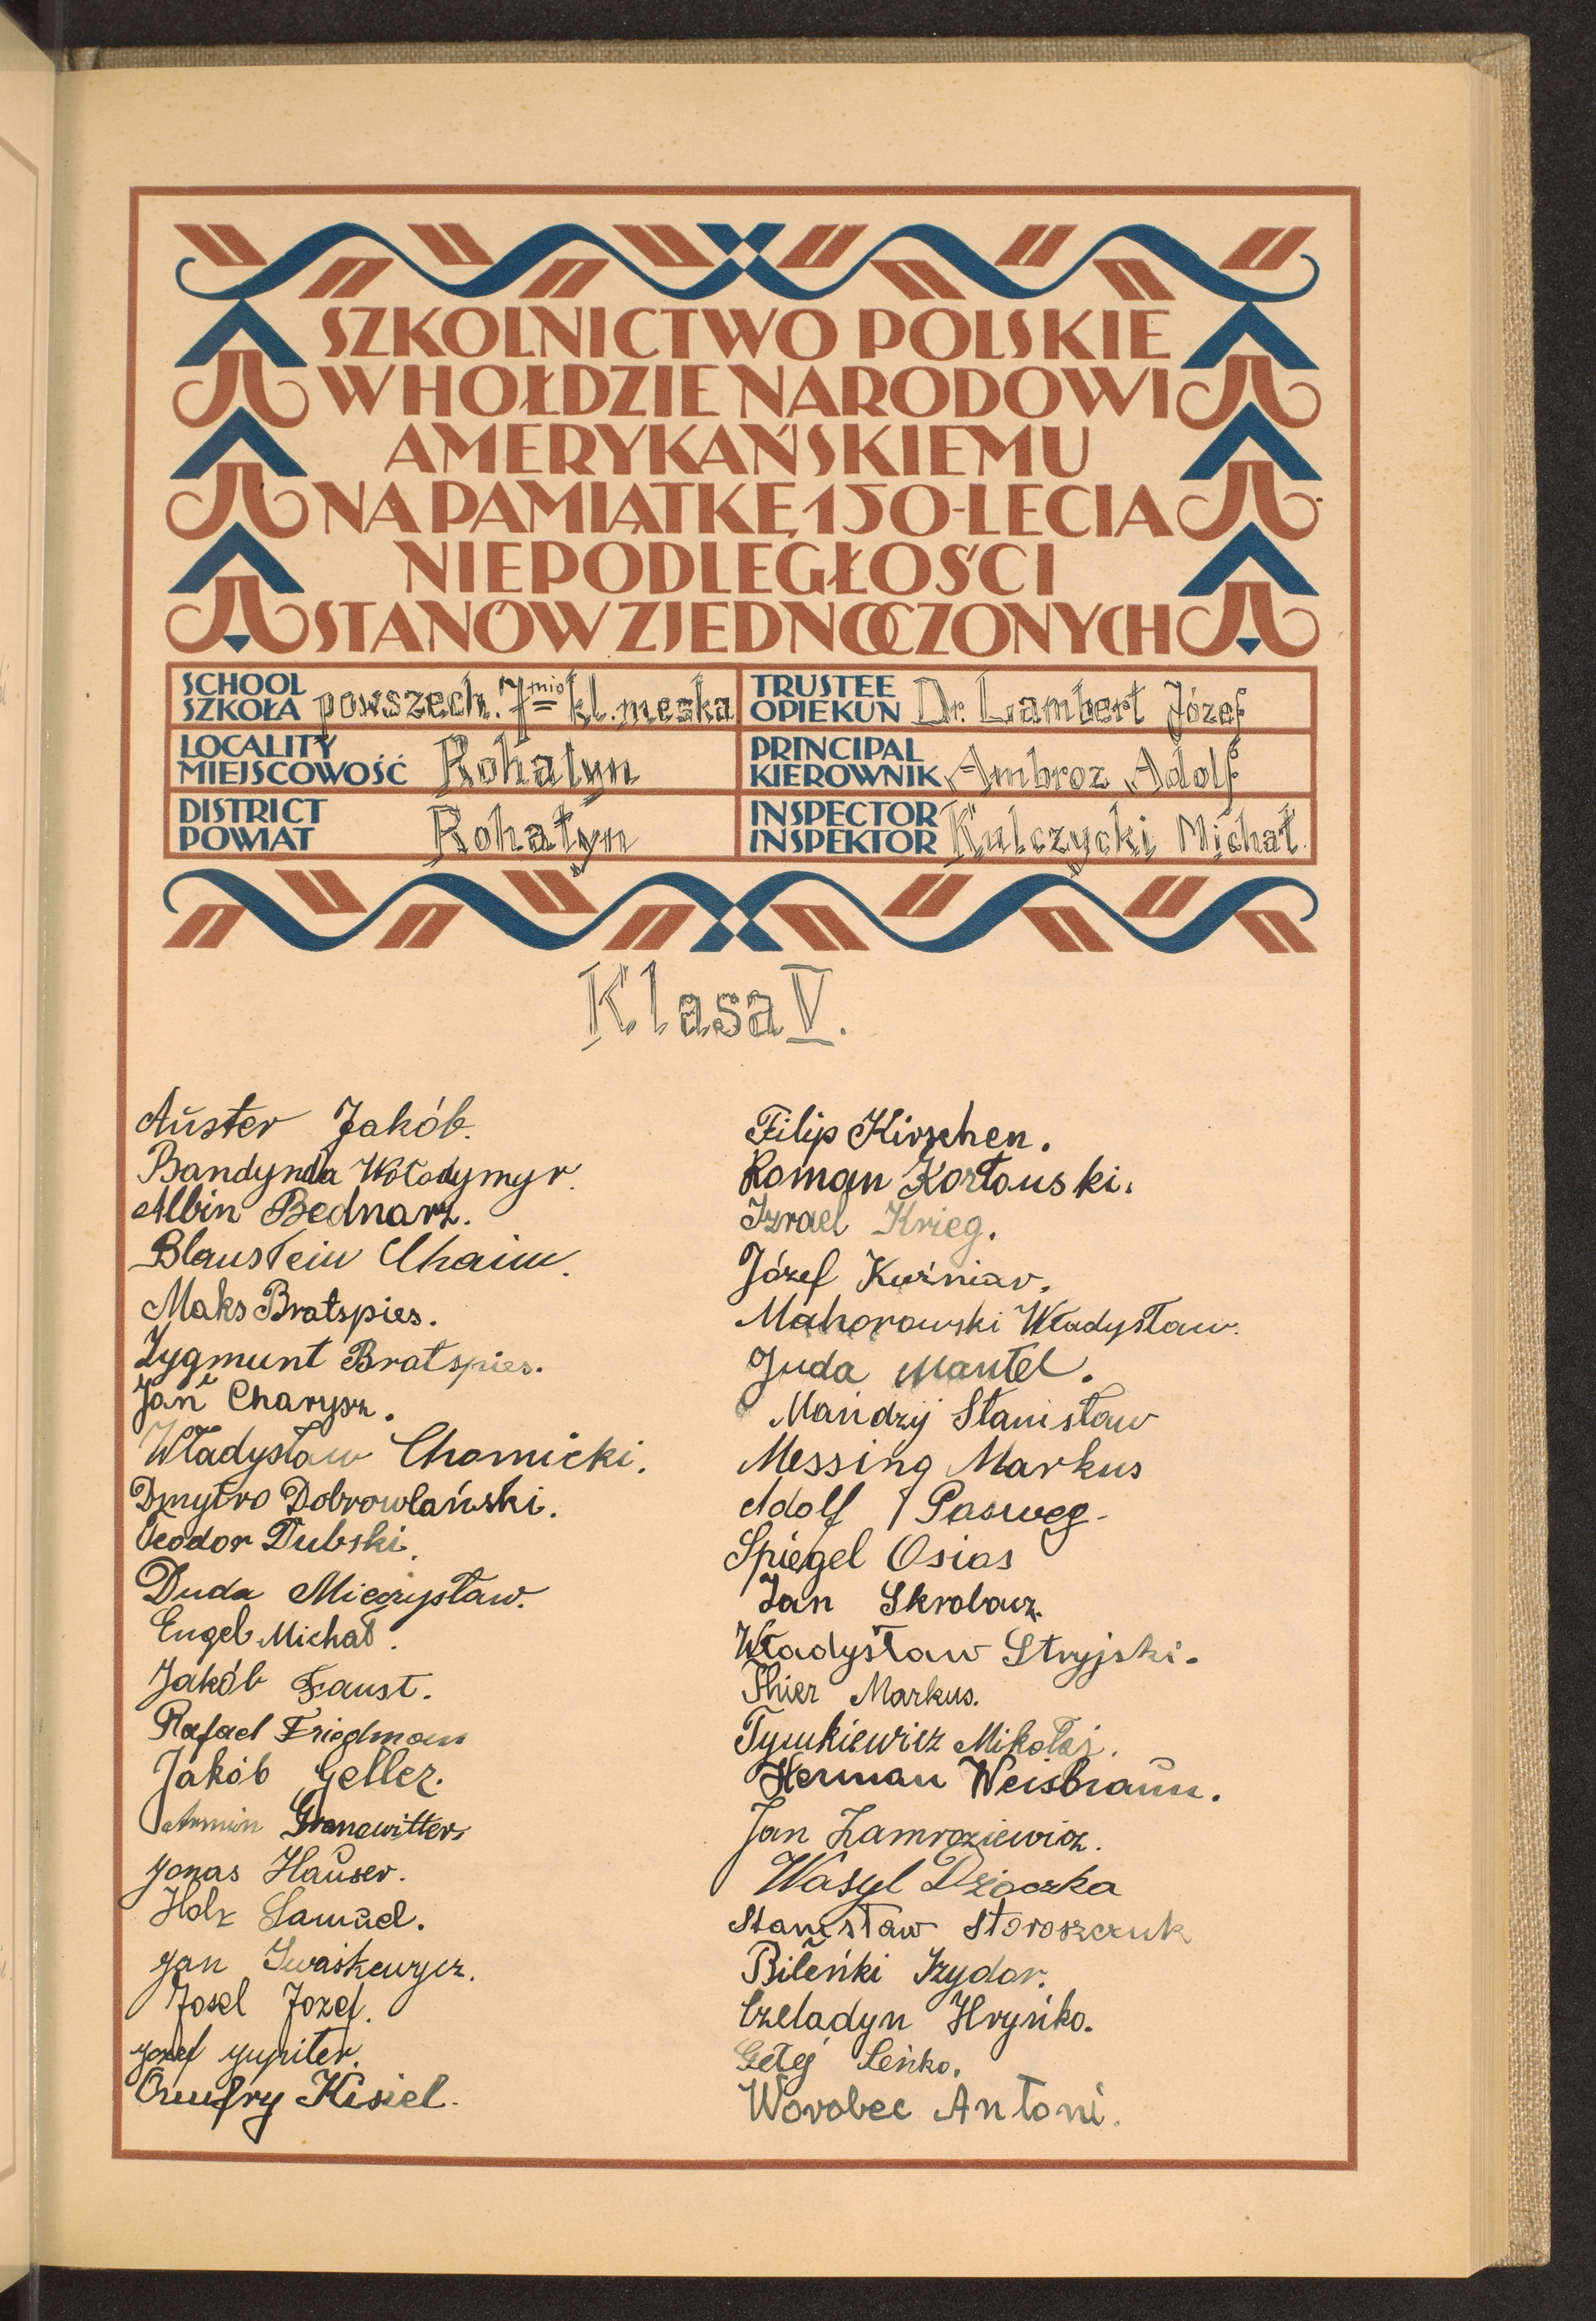 SZKOLNICTWO POLSKIE
W HOŁDZIE NARODOWI
AMERYKAŃSKIEMU
NA PAMIĄTKĘ 150-LECIA
NIEPODLEGŁOŚCI
STANÓW ZJEDNOCZONYCH
SCHOOL
SZKOŁA powszech. 7mio kl. męska
TRUSTEE
OPIEKUN Dr. Lambert Józef
LOCALITY
MIEJSCOWOŚĆ Rohatyn
PRINCIPAL
KIEROWNIK Ambroz Adolf
DISTRICT
POWIAT Rohatyn
INSPECTOR
INSPEKTOR Kulczycki Michał.
Klasa V.
Auster Jakób.
Bandynda Wołodymyr.
Albin Bednarz.
Blaustein Chaim.
Maks Bratspies.
Zygmunt Bratspies.
Jan Charysz.
Władysław Chomicki.
Dmytro Dobrowlański.
Teodor Dubski.
Duda Mieczysław.
Engel Michał.
Jakób Faust.
Rafael Friedman
Jakób Geller.
Armin Granowitter.
Jonas Hauser.
Holz Samuel.
Jan Iwaśkewycz.
Josel Jozef.
Jozef Jupiter.
Onufry Kisiel.
Filip Kirschen.
Roman Korłouski.
Izrael Krieg.
Józef Kuźniar.
Mahorowski Władysław.
Juda Mantel.
Mandzij Stanisław
Messing Markus
Adolf Pasweg.
Spiegel Osias
Jan Skrobacz.
Władysław Stryjski.
Thier Markus.
Tymkiewicz Mikołaj.
Herman Weisbraun.
Jan Zamroziewicz.
Wasyl Dziaczka
Stanisław Storoszczuk
Bileńki Izydor.
Czeladyn Hryńko.
Gełej Seńko.
Worobec Antoni.